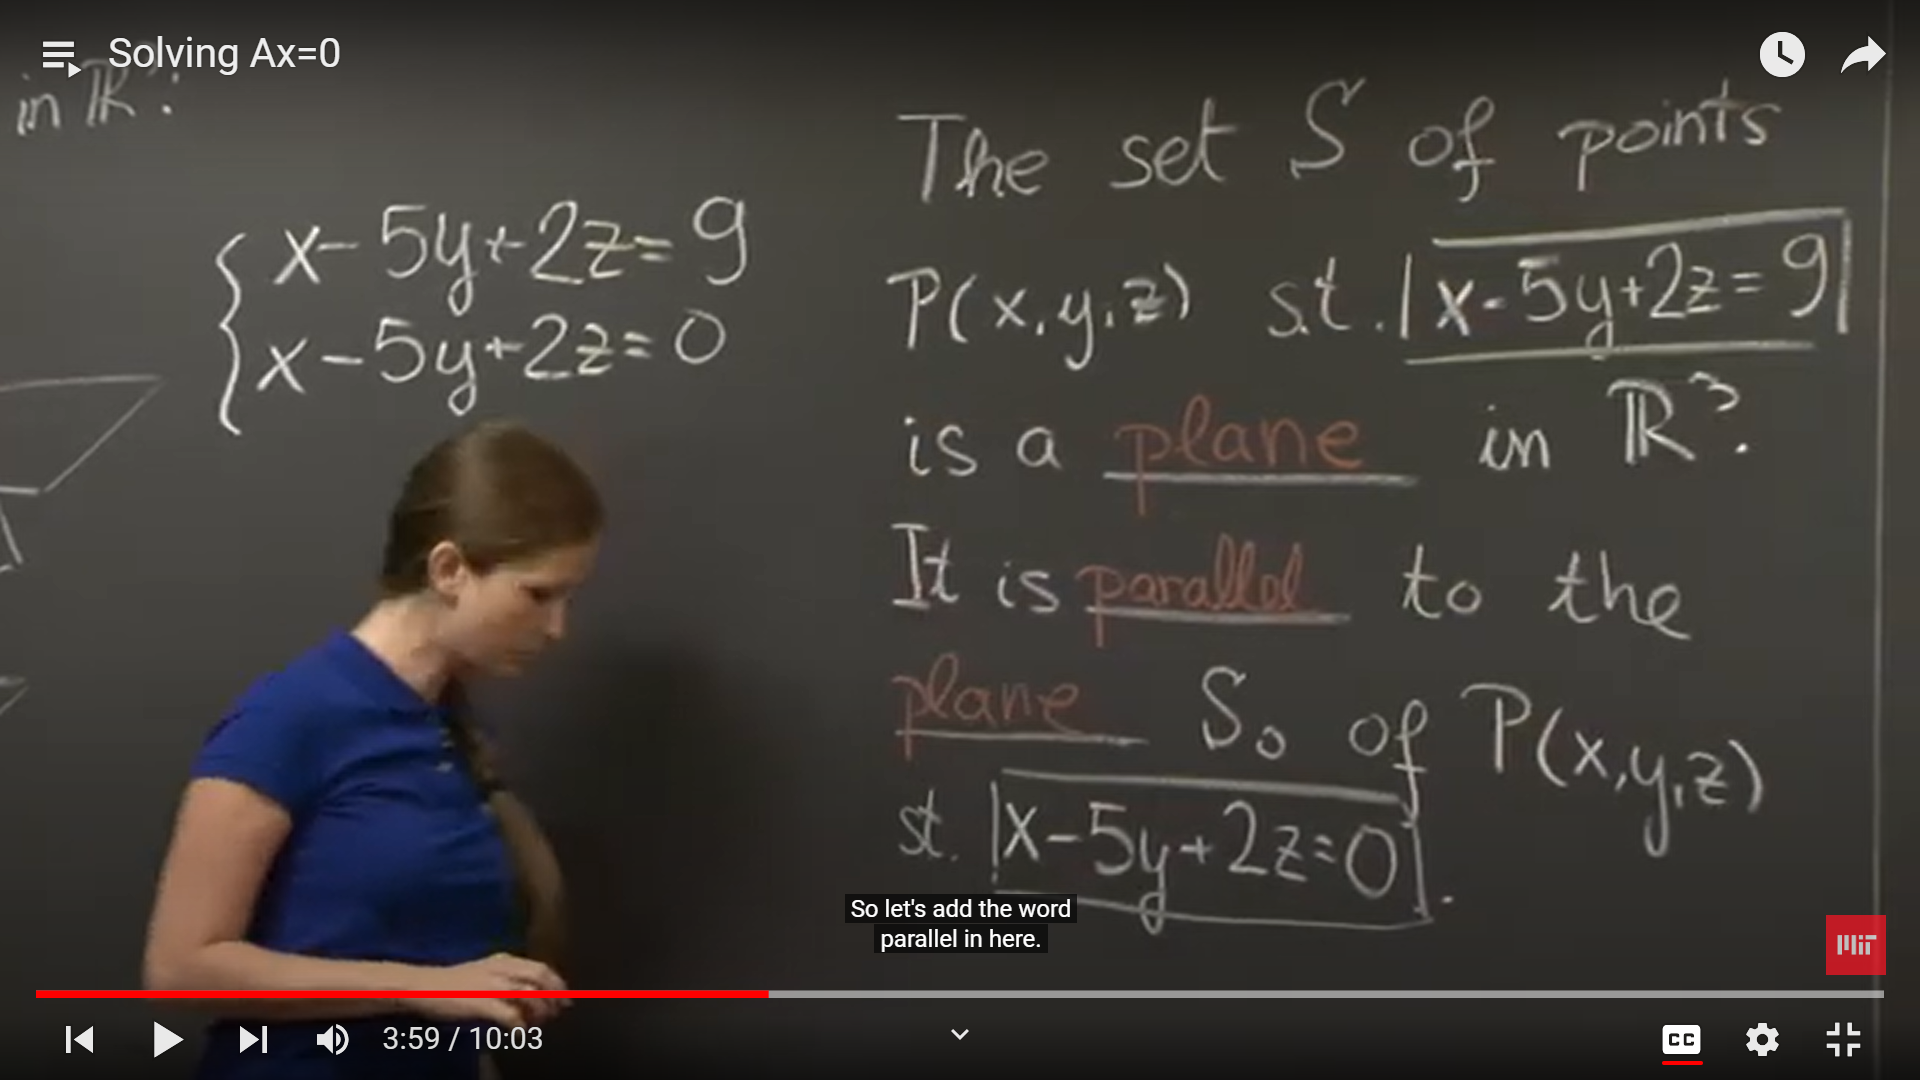 Solving Ax=0
in ℝ³:
x-5y+2z=9
x-5y+2z=0
The set S of points
P(x,y,z) s.t. x-5y+2z=9
is a plane in ℝ³.
It is parallel to the
plane S₀ of P(x,y,z)
st. x-5y+2z=0.
So let's add the word
parallel in here.
MIT
3:59 / 10:03
CC